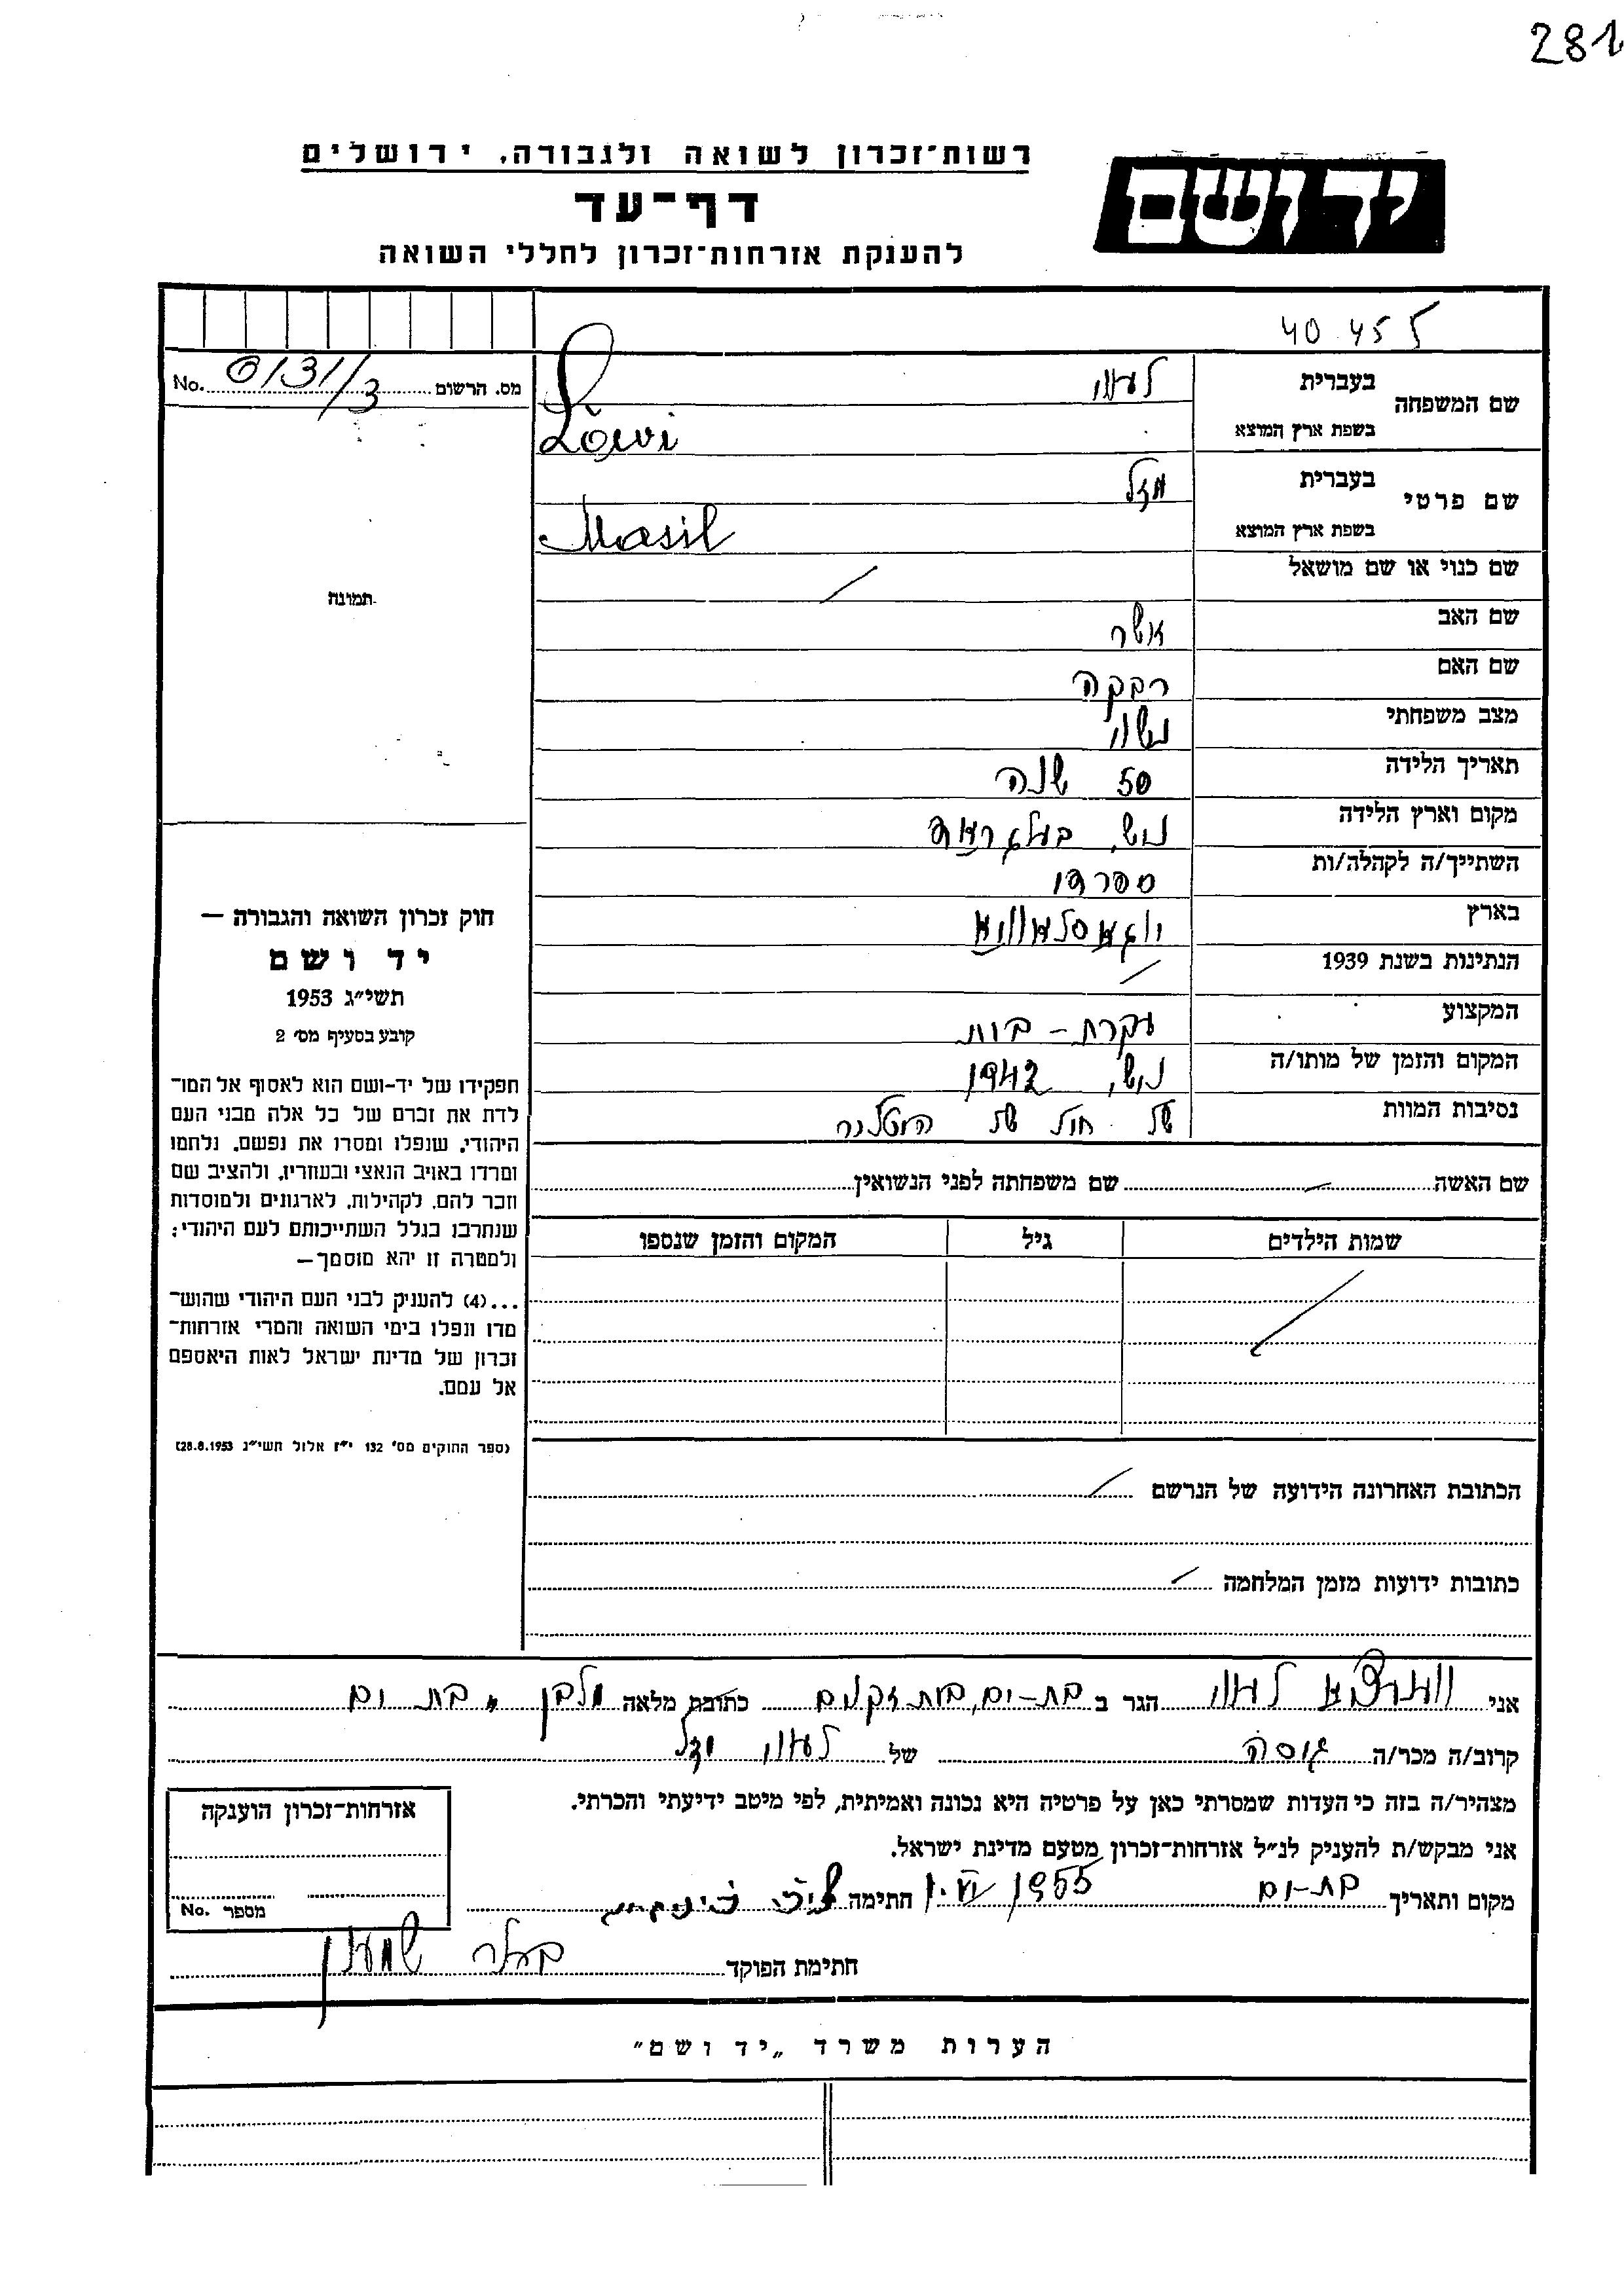 281
רשות־זכרון לשואה ולגבורה, ירושלים
יד ושם
דף־עד
להענקת אזרחות־זכרון לחללי השואה
40 455
מס. הרשום No. 0/31/3
שם המשפחה
בעברית לעווי
בשפת ארץ המוצא Löwi
שם פרטי
בעברית מזל
בשפת ארץ המוצא Masil
שם כנוי או שם מושאל /
תמונה
שם האב אשר
שם האם רבקה
מצב משפחתי נשוי
תאריך הלידה 50 שנה
מקום וארץ הלידה ניש,
השתייך/ה לקהלה/ות ספרדי
בארץ יוגאסלאוויא
הנתינות בשנת 1939 /
המקצוע עקרת - בית
המקום והזמן של מותו/ה ניש, 1942
נסיבות המוות על
שם האשה שם משפחתה לפני הנשואין
שמות הילדים גיל המקום והזמן שנספו
חוק זכרון השואה והגבורה —
יד ושם
תשי״ג 1953
קובע בסעיף מס׳ 2
תפקידו של יד-ושם הוא לאסוף אל המו־
לדת את זכרם של כל אלה מבני העם
היהודי, שנפלו ומסרו את נפשם, נלחמו
ומרדו באויב הנאצי ובעוזריו, ולהציב שם
וזכר להם, לקהילות, לארגונים ולמוסדות
שנחרבו בגלל השתייכותם לעם היהודי;
ולמטרה זו יהא מוסמך—
...(4) להעניק לבני העם היהודי שהוש־
מדו ונפלו בימי השואה והמרי אזרחות־
זכרון של מדינת ישראל לאות היאספם
אל עמם.
(ספר החוקים מס׳ 132 י״ז אלול תשי״ג 28.8.1953)
הכתובת האחרונה הידועה של הנרשם
כתובות ידועות מזמן המלחמה
אני לעווי הגר ב בת-ים, בית זקנים כתובת מלאה מלבן, בת ים
קרוב/ה מכר/ה גיסה של לעווי מזל
מצהיר/ה בזה כי העדות שמסרתי כאן על פרטיה היא נכונה ואמיתית, לפי מיטב ידיעתי והכרתי.
אני מבקש/ת להעניק לנ״ל אזרחות־זכרון מטעם מדינת ישראל.
מקום ותאריך בת-ים 1955 החתימה
חתימת הפוקד שמעון
אזרחות־זכרון הוענקה
מספר No.
הערות משרד „יד ושם״